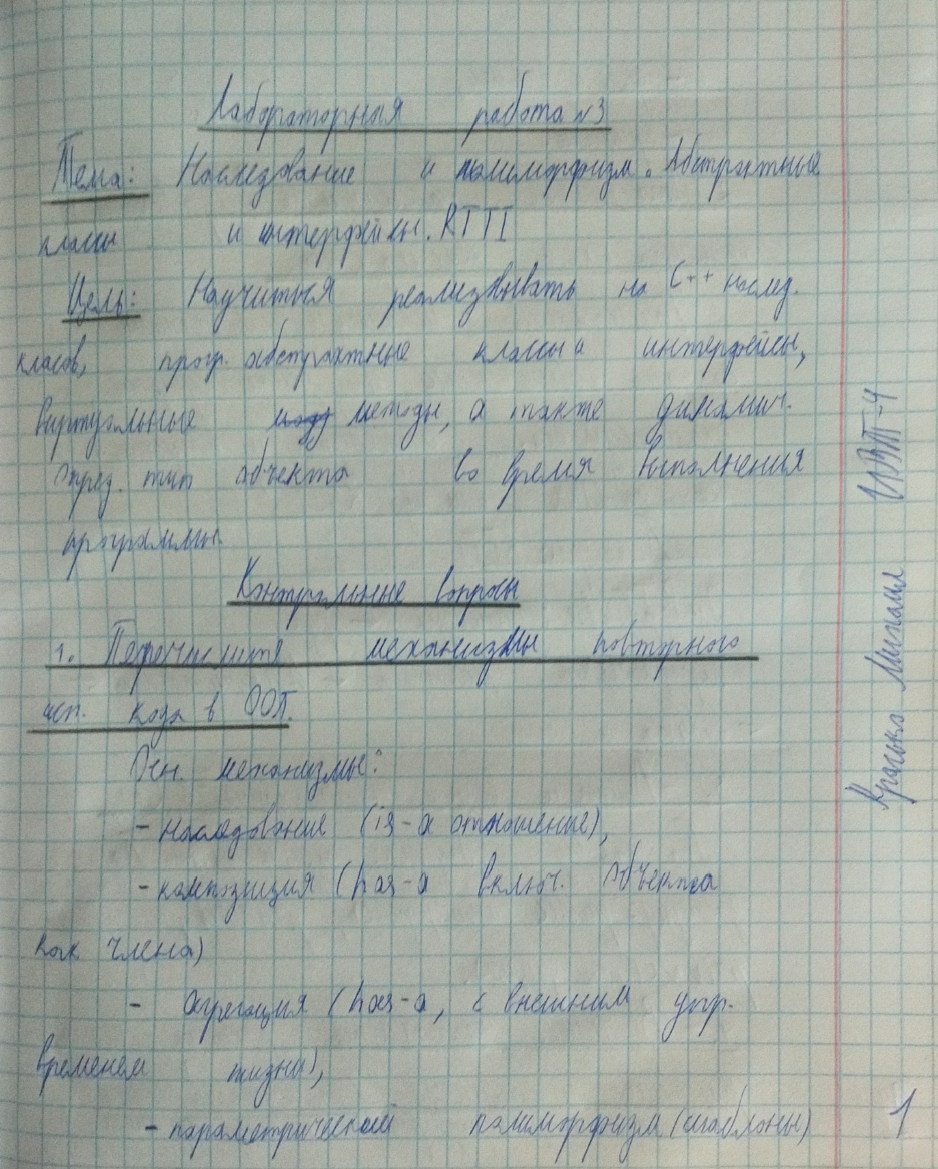 Лабораторная работа №3
Тема: Наследование и полиморфизм. Абстрактные
классы и интерфейсы. RTTI
Цель: Научиться реализовывать на C++ наслед.
класов, прогр. абстрактные классы и интерфейсы,
виртуальные методы, а также динамич.
опред. тип объекта во время выполнения
программы.
Контрольные вопросы
1. Перечислите механизмы повторного
исп. кода в ООП.
Осн. механизмы:
- наследование (is-a отношение),
- композиция (has-a включ. объекта
как члена)
- агрегация (has-a, с внешним упр.
временем жизни),
- параметрический полиморфизм (шаблоны)
Михаил ИВТ-4
1